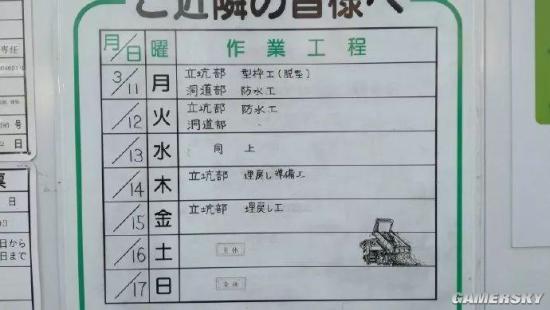 ご近隣の皆様へ
月/日 曜 作業工程
3/11 月 立坑部 型枠工(脱型)
洞道部 防水工
/12 火 立坑部 防水工
洞道部 〃
/13 水 同上
/14 木 立坑部 埋戻し準備工
/15 金 立坑部 埋戻し工
/16 土
/17 日
GAMERSKY